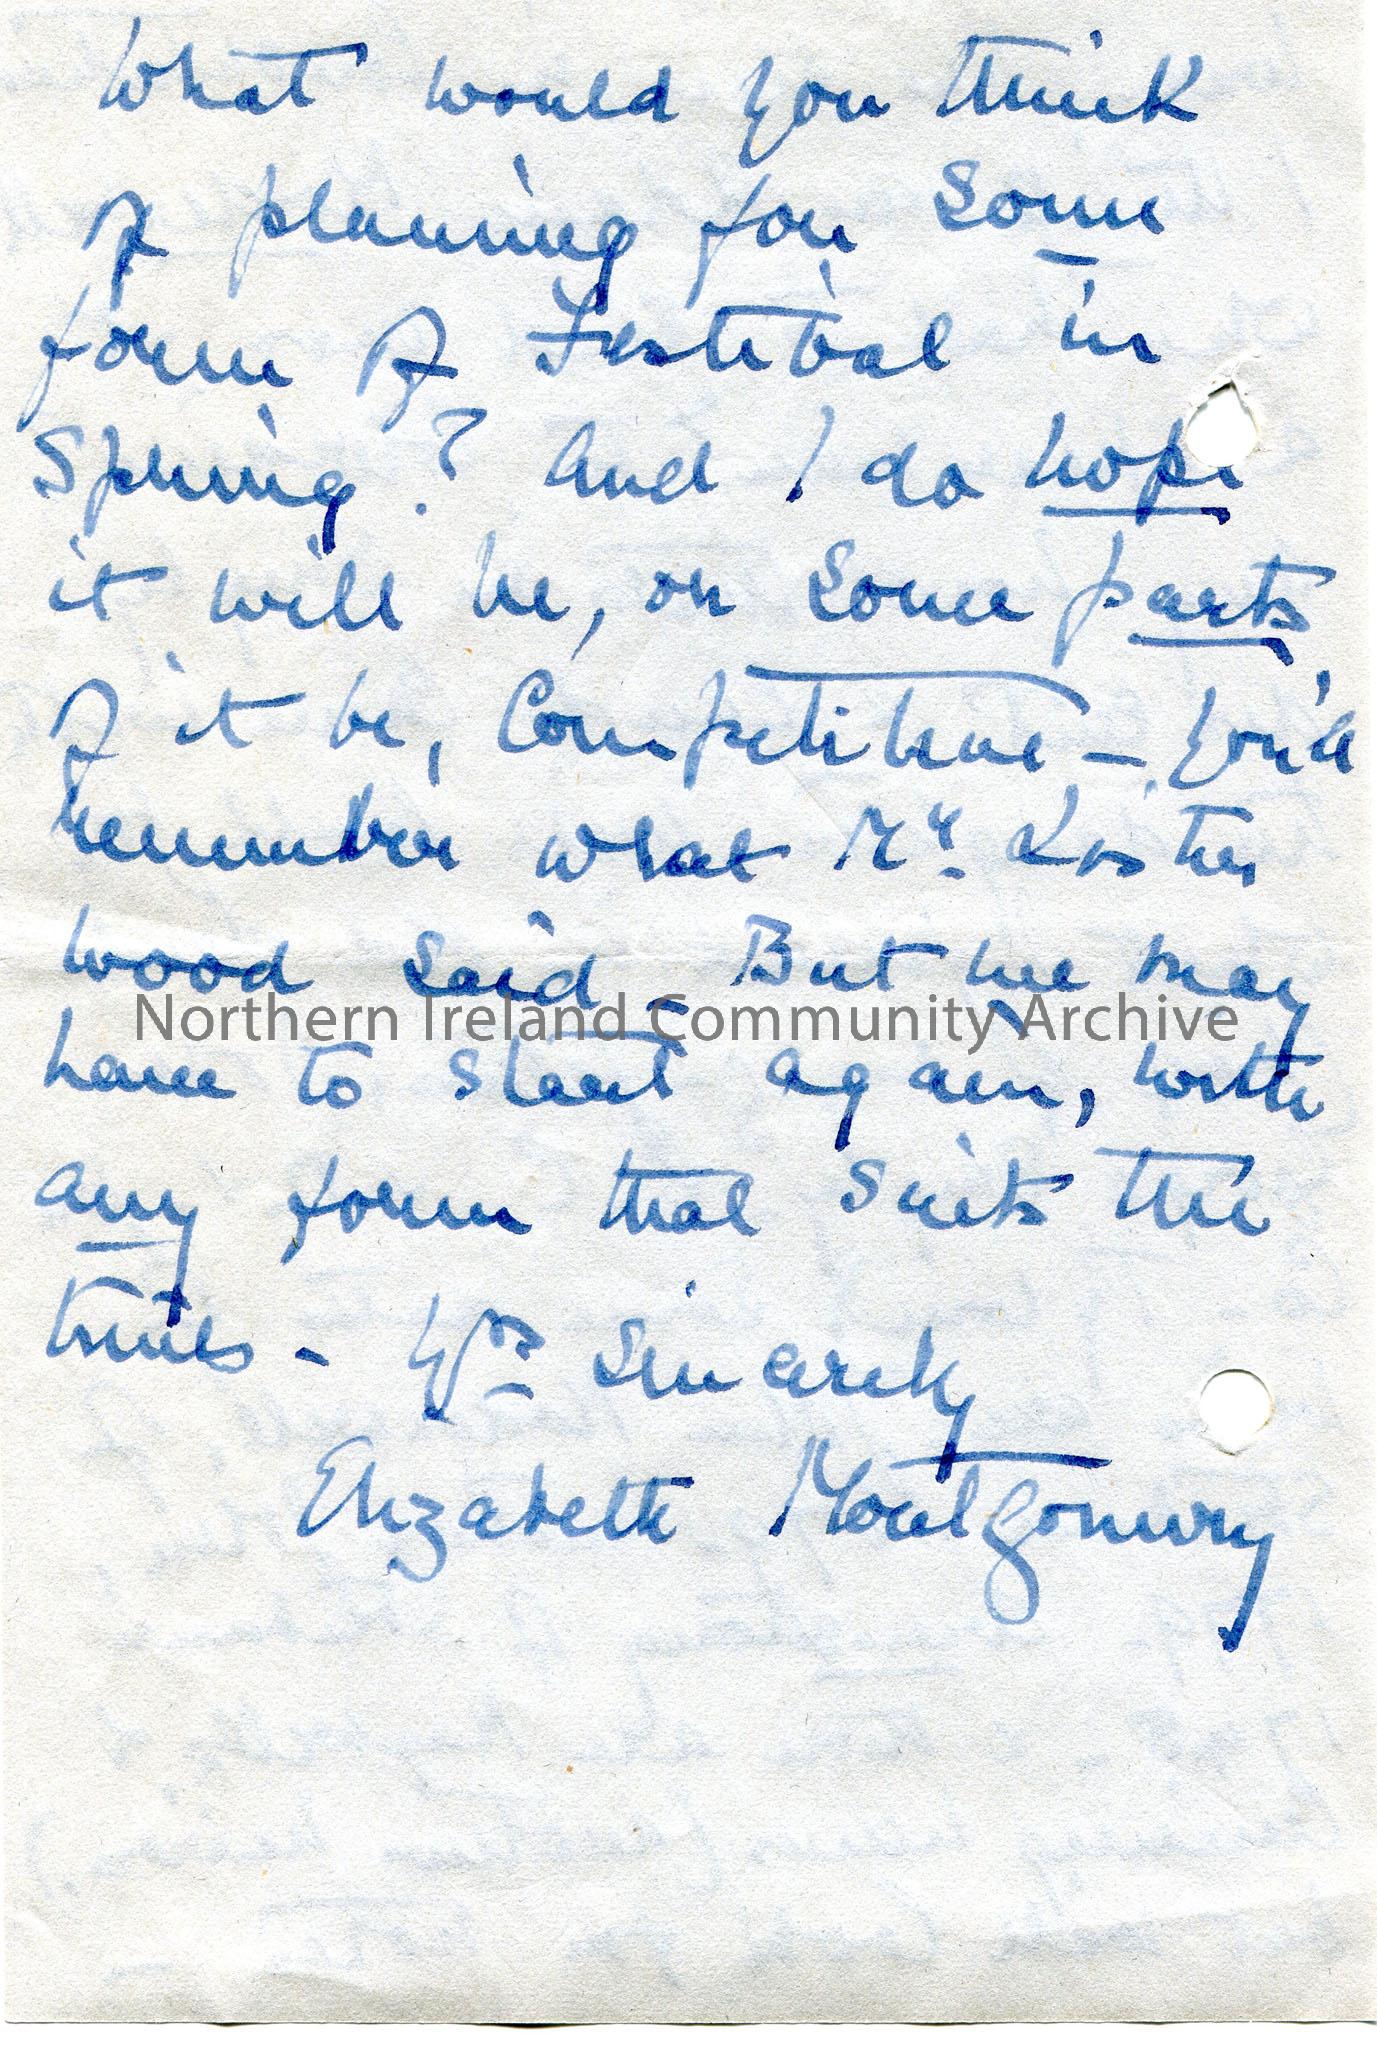 What would you think
of planning for some
form of Festival in
Spring? And I do hope
it will be, or some parts
of it be, Competitive – you'll
remember what Mr.
wood said – But we may
have to start again, with
any form that suits the
times – Yrs sincerely
Elizabeth Montgomery
Northern Ireland Community Archive